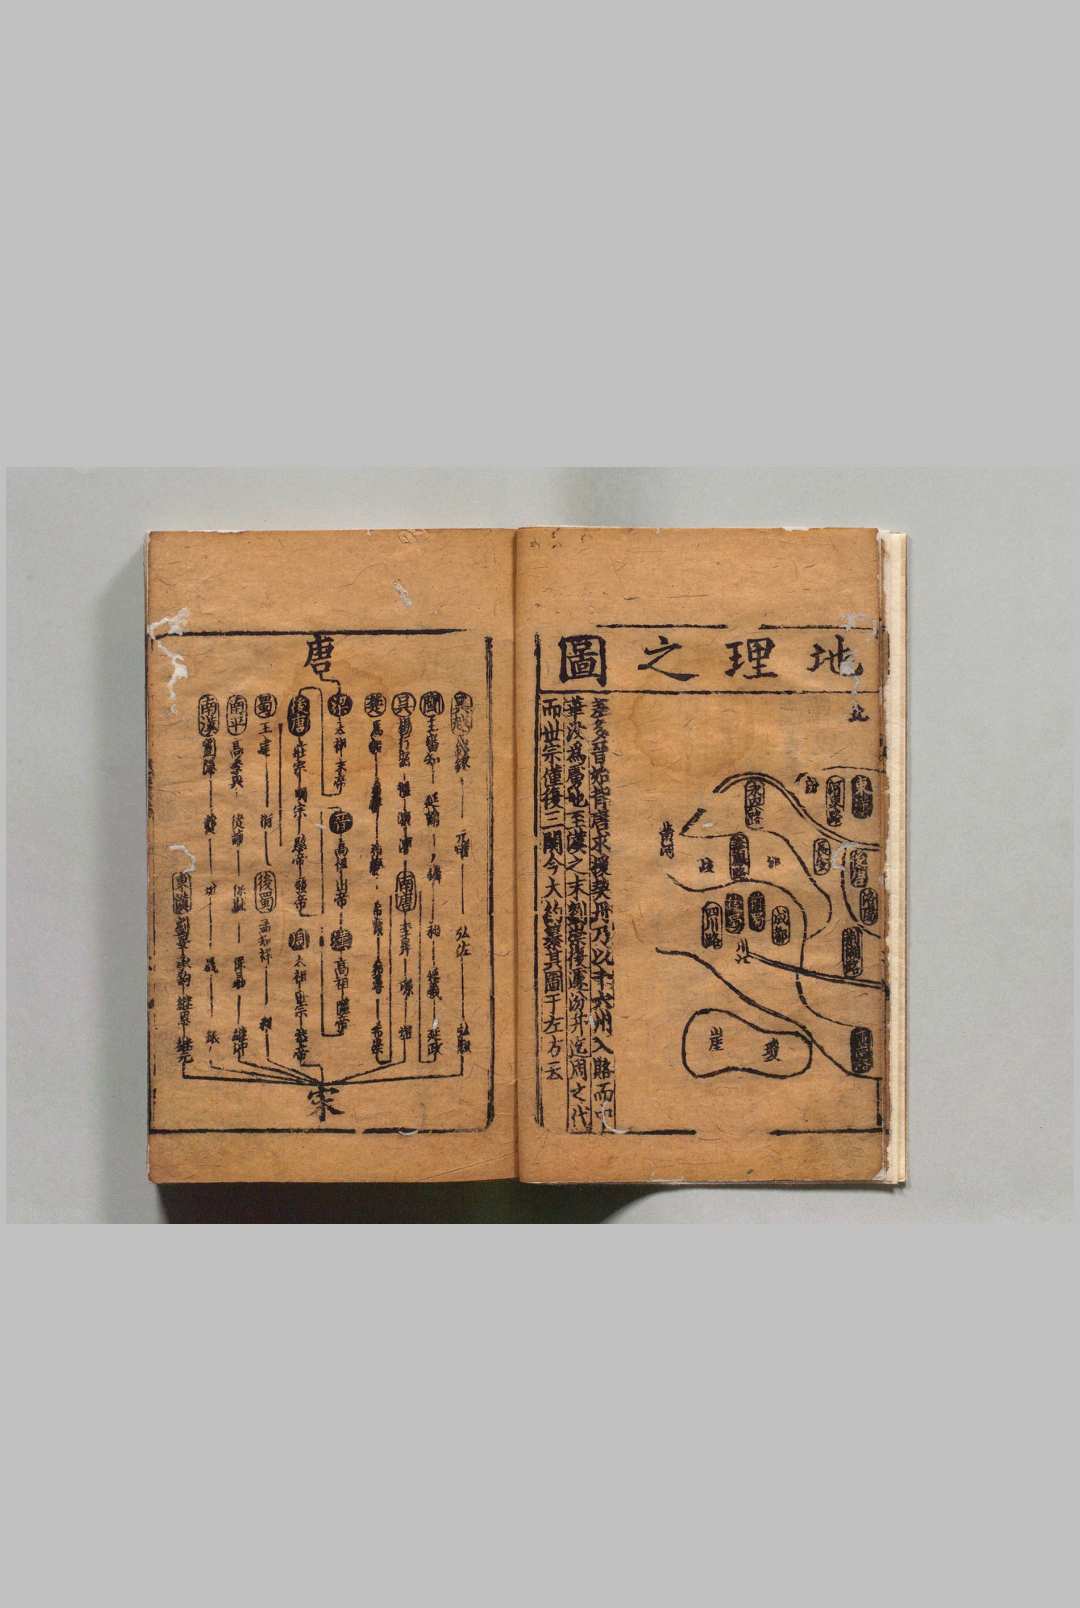 地理之圖
北
東
河東路
永興路
黃河
岐
四川路
成都
川江
崖
瓊
差多晉始皆唐求援契丹乃以十六州入賂而中
華没為虜地至漢之末劉崇復據汾并迄周之代
而世宗僅復三關今大約纂其圖于左方云
唐
吳越 錢鏐 元瓘 弘佐 弘俶
閩 王審知 延翰 鏻 昶 延羲 延政
吳 楊行密 渥 渭 溥 南唐 李昪 璟 煜
楚 馬殷 希聲 希範 希廣 希萼 希崇
梁 太祖 末帝
晉 高祖 出帝
漢 高祖 隱帝
後唐 莊宗 明宗 愍帝 廢帝
周 太祖 世宗 恭帝
蜀 王建 衍 後蜀 孟知祥 昶
南平 高季興 從誨 保融 保勗 繼冲
南漢 劉隱 龑 玢 晟 鋹
東漢 劉旻 承鈞 繼恩 繼元
宋